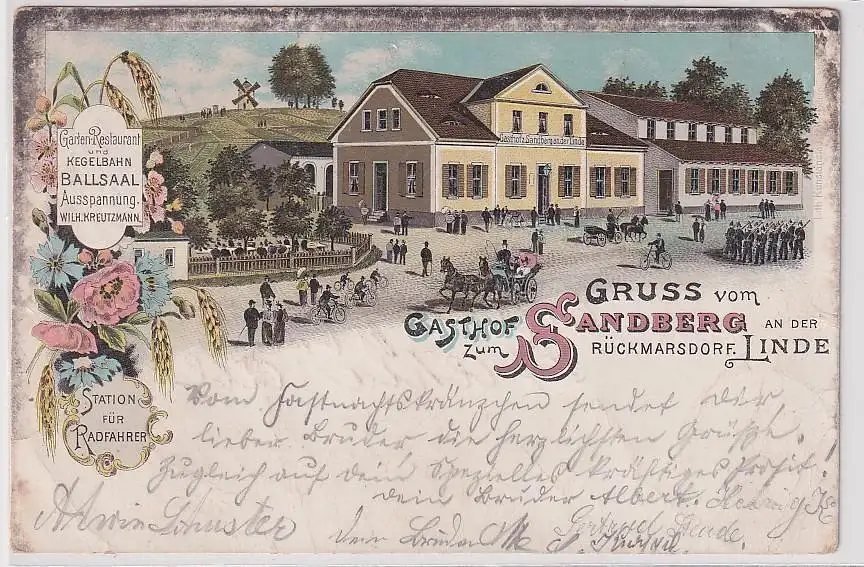 Garten-Restaurant
und
KEGELBAHN
BALLSAAL
Ausspannung.
WILH. KREUTZMANN.
Gasthof z. Sandberg an der Linde
GRUSS vom
GASTHOF zum SANDBERG AN DER LINDE
RÜCKMARSDORF.
STATION
FÜR
RADFAHRER
Vom Fastnachtskränzchen sendet Dir
lieber Bruder die herzlichsten Grüße.
Zugleich auf dein spezielles kräftiges Prosit!
dein Bruder Albert. Hedwig
Arwin Schuster
Dein Bruder